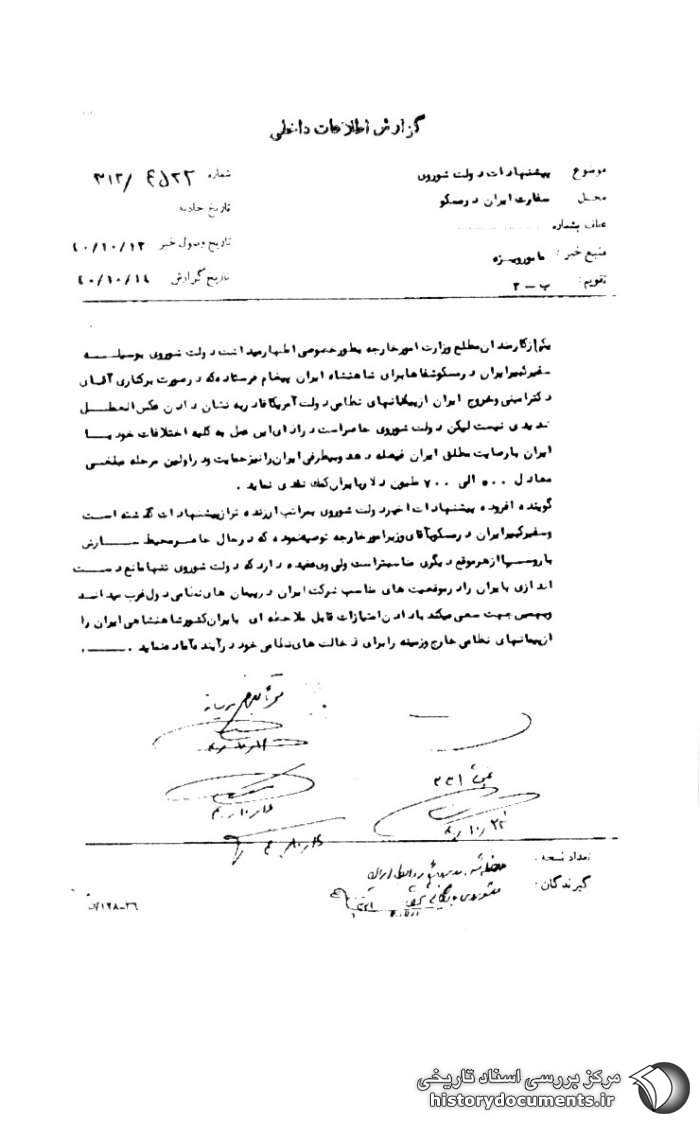 گزارش اطلاعات داخلی
موضوع پیشنهادات دولت شوروی
شماره ۳۱۲/
محل سفارت ایران در مسکو
تاریخ حادثه
عطف بشماره
تاریخ وصول خبر ۴۰/۱۰/۱۲
منبع خبر: مامور ویژه
تاریخ گزارش ۴۰/۱۰/۱۴
تقویم: ب-۲
یکی از کارمندان مطلع وزارت امور خارجه بطور خصوصی اظهار میداشت دولت شوروی بوسیله
سفیر کبیر ایران در مسکو شفاها برای شاهنشاه ایران پیغام فرستاده که در صورت برکناری آقای
دکتر امینی و خروج ایران از پیمانهای نظامی دولت آمریکا قادر به نشان دادن عکس العمل
شدیدی نیست لیکن دولت شوروی حاضر است در ازای این عمل به کلیه اختلافات خود با
ایران با رضایت مطلق ایران فیصله دهد و بیطرفی ایران را نیز حمایت و در اولین مرحله مبلغی
معادل ۵۰۰ الی ۷۰۰ ملیون دلار بایران کمک نقدی نماید .
گوینده افزوده پیشنهادات اخیر دولت شوروی بمراتب ارزنده تر از پیشنهادات گذشته است
و سفیر کبیر ایران در مسکو بآقای وزیر امور خارجه توصیه نموده که در حال حاضر محیط سازش
با روسها از هر موقع دیگری مناسبتر است ولی وی عقیده دارد که دولت شوروی تنها مانع دست
اندازی بایران را در موقعیت های مناسب شرکت ایران در پیمان های نظامی دول غرب میداند
و بهمین جهت سعی میکند با دادن امتیازات قابل ملاحظه ای بایران کشور شاهنشاهی ایران را
از پیمانهای نظامی خارج و زمینه را برای دخالت های نظامی خود در آینده آماده نماید .
بخش ۳۳۱
تعداد نسخه:
گیرندگان:
۱۲۸-۳۶
مرکز بررسی اسناد تاریخی
historydocuments.ir